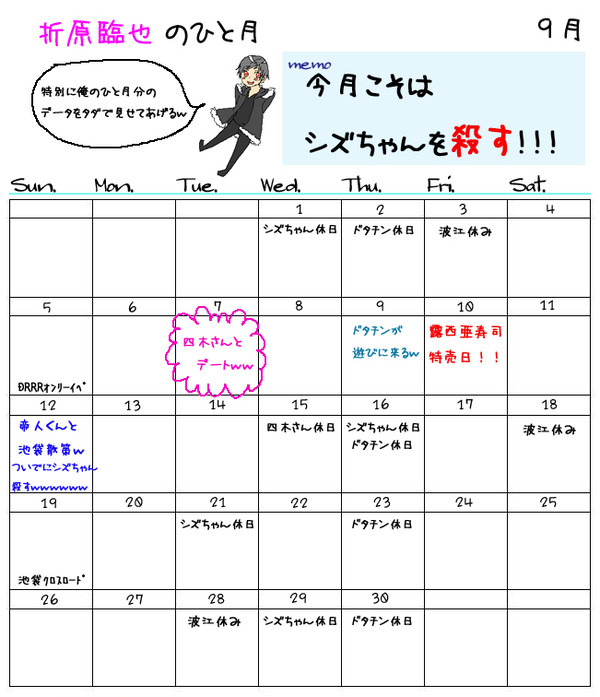 折原臨也 のひと月
9月
特別に俺のひと月分の
データをタダで見せてあげるw
memo
今月こそは
シズちゃんを殺す!!!
Sun. Mon. Tue. Wed. Thu. Fri. Sat.
1 2 3 4
シズちゃん休日 ドタチン休日 波江休み
5 6 7 8 9 10 11
四木さんと
デートww
ドタチンが
遊びに来るw
露西亜寿司
特売日!!
DRRRオンリーイベ
12 13 14 15 16 17 18
帝人くんと
池袋散策w
ついでにシズちゃん
殺すwwwwww
四木さん休日
シズちゃん休日
ドタチン休日
波江休み
19 20 21 22 23 24 25
シズちゃん休日 ドタチン休日
池袋クロスロード
26 27 28 29 30
波江休み シズちゃん休日 ドタチン休日